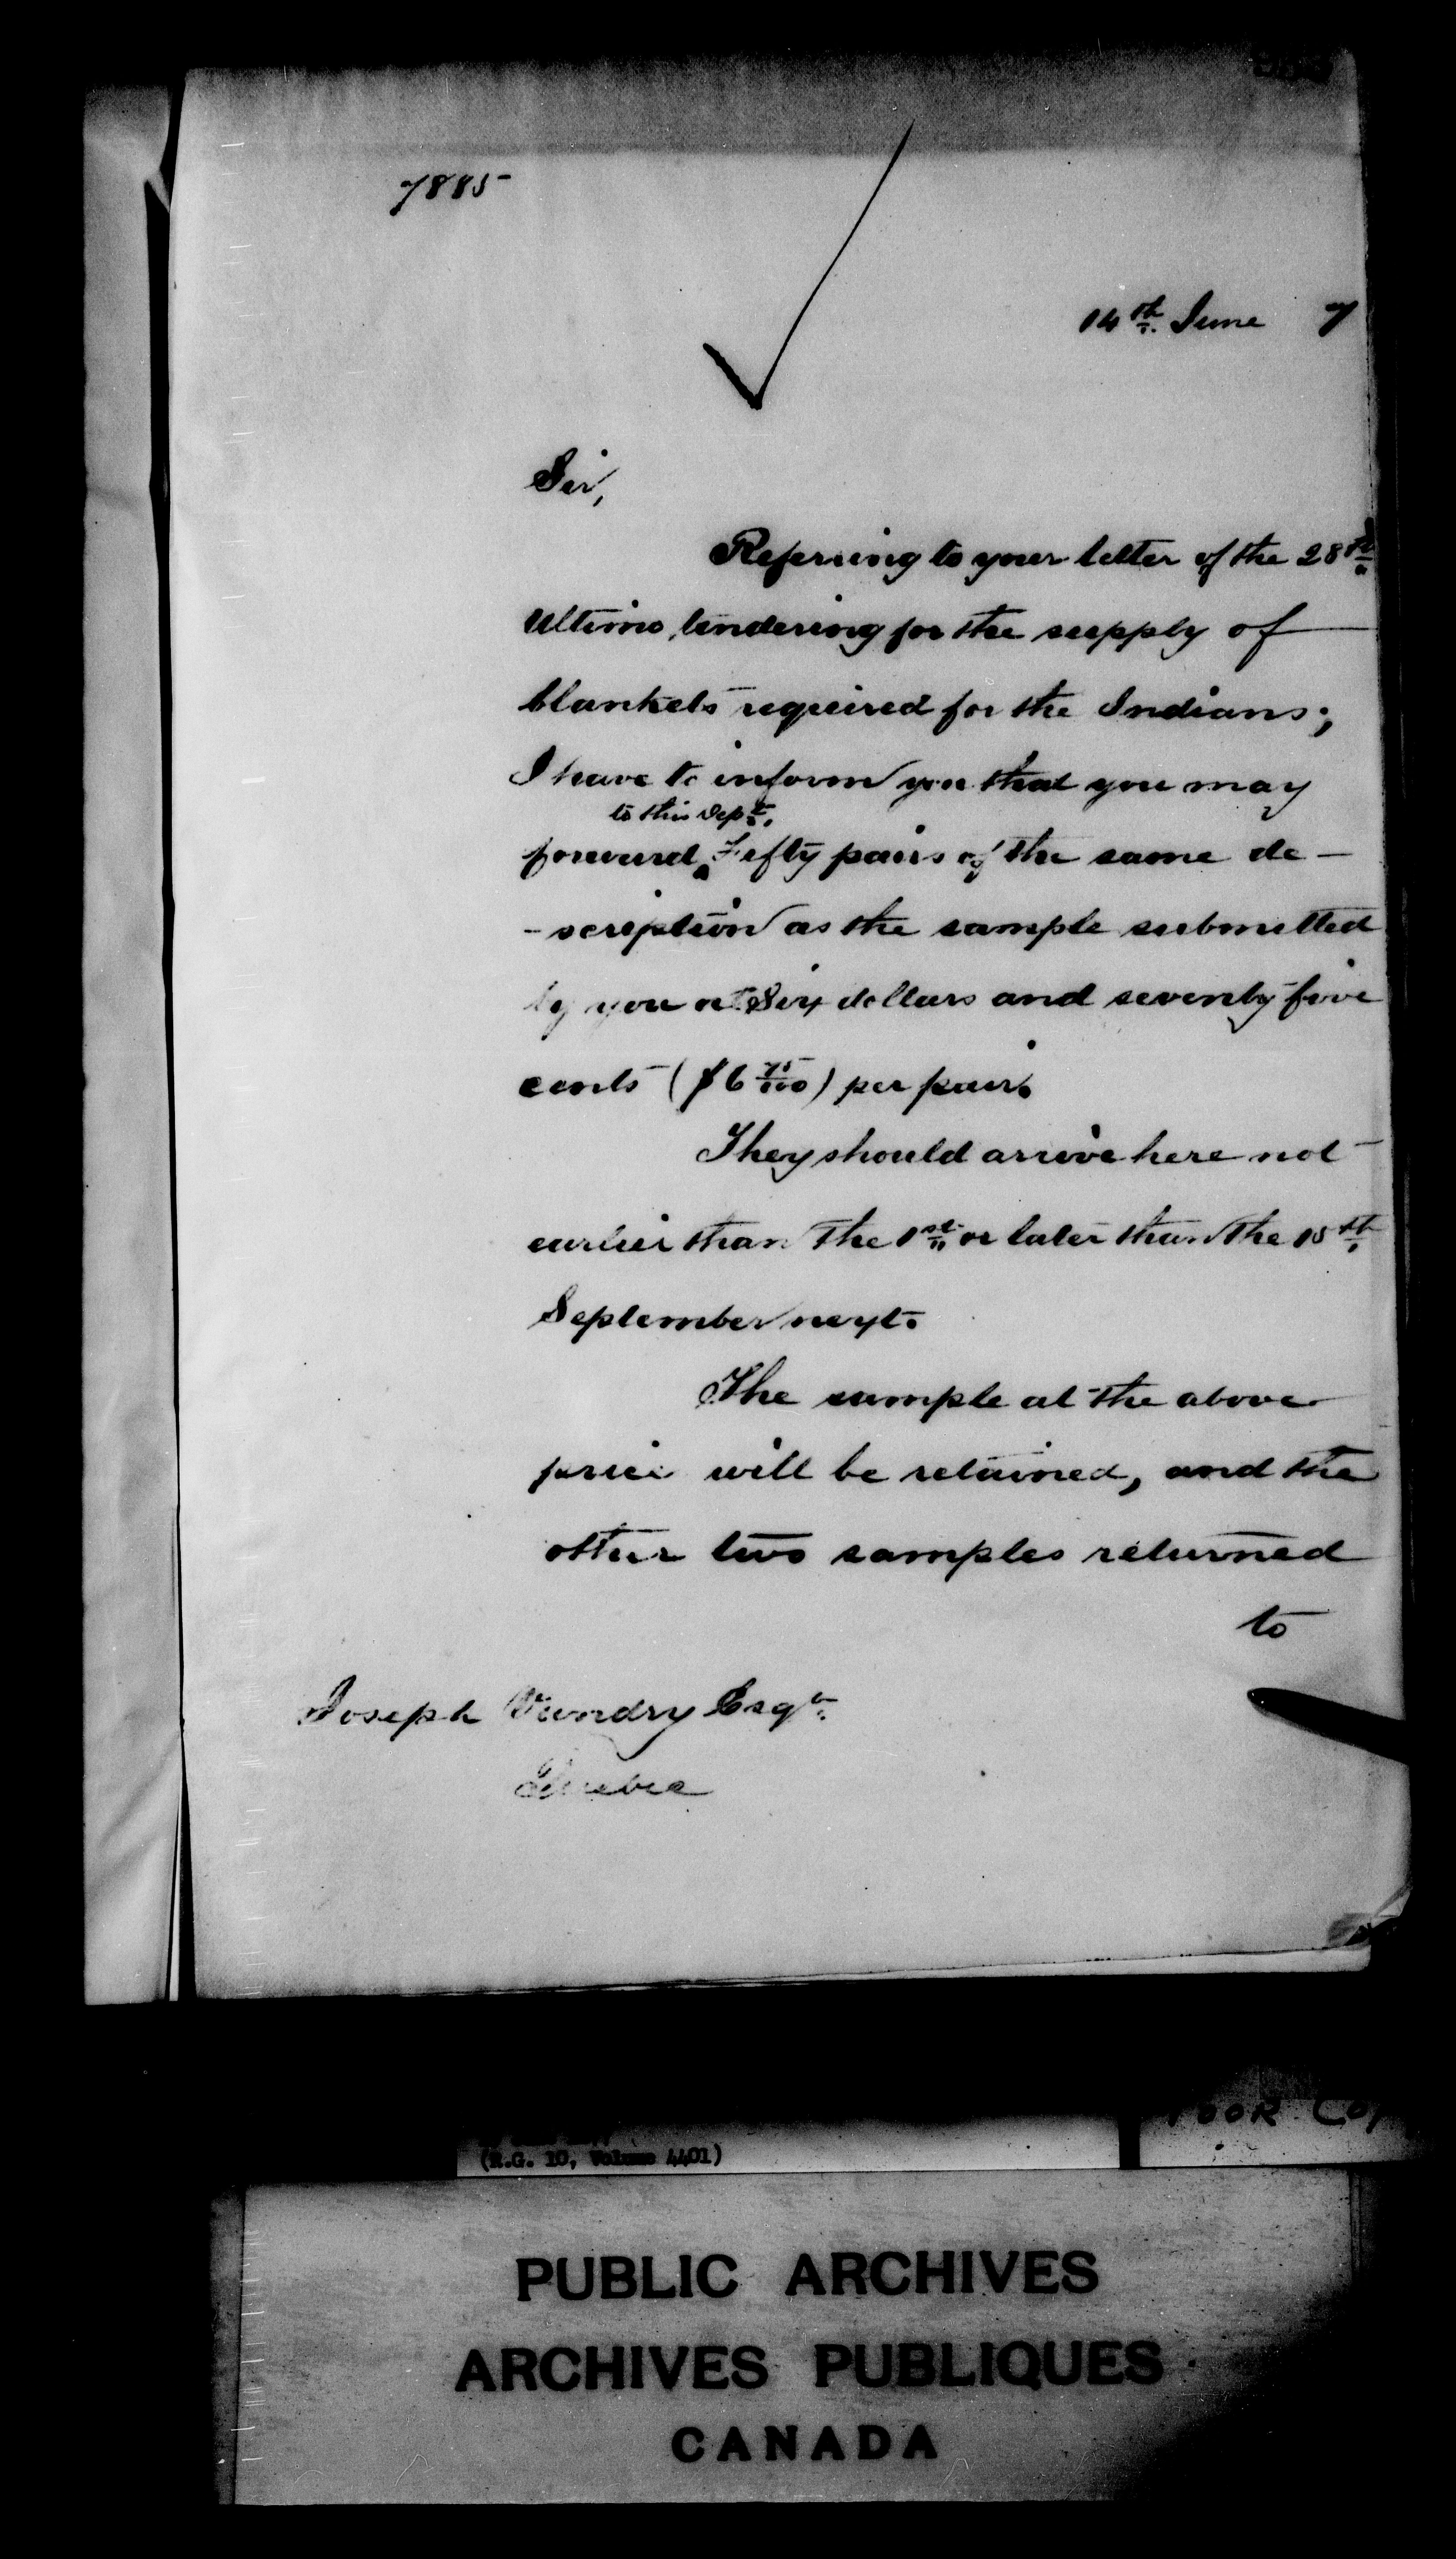 7885
14th June 7
Sir,
Referring to your letter of the 28th
Ultimo, tendering for the supply of
blankets required for the Indians;
I have to inform you that you may
to this Dept.
forward Fifty pairs of the same de-
-scription as the sample submitted
by you at Six dollars and seventy five
cents ($6 75/100) per pair.
They should arrive here not
earlier than the 1st or later than the 15th
September next.
The sample at the above
price will be retained, and the
other two samples returned
to
Joseph Esqr.
Quebec
POOR COP
(R.G. 10, Volume 4401)
PUBLIC ARCHIVES
ARCHIVES PUBLIQUES
CANADA